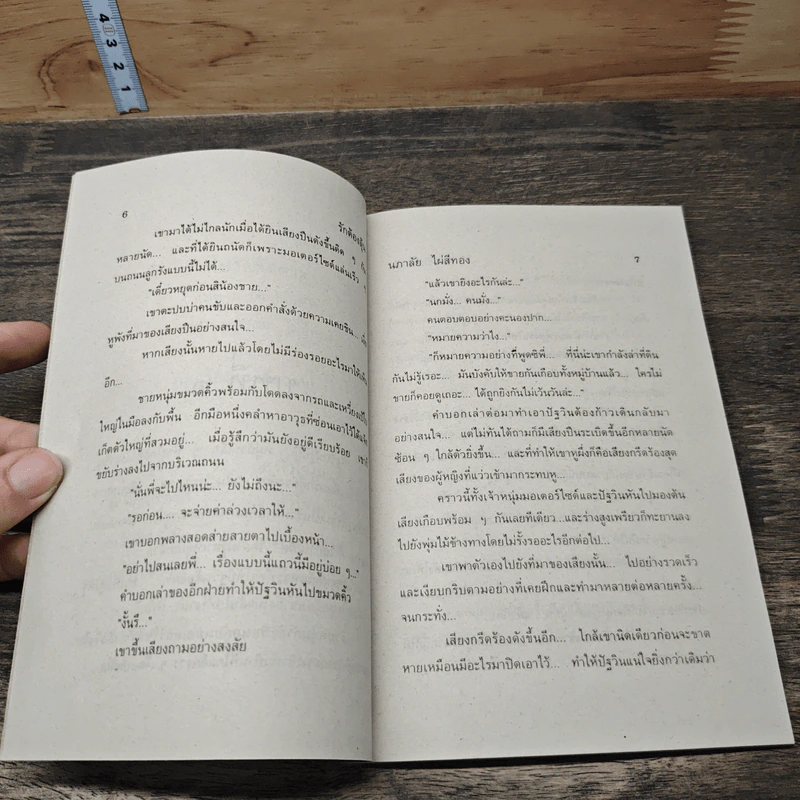 4
3
2
1
6
รักต้องลุ้น
เขามาได้ไม่ไกลนักเมื่อได้ยินเสียงปืนดังขึ้นติด ๆ กัน
หลายนัด... และที่ได้ยินถนัดก็เพราะมอเตอร์ไซด์แล่นเร็ว ๆ
บนถนนลูกรังแบบนี้ไม่ได้...
"เดี๋ยวหยุดก่อนสิน้องชาย..."
เขาตะปบบ่าคนขับและออกคำสั่งด้วยความเคยชิน...
หูฟังที่มาของเสียงปืนอย่างสนใจ...
หากเสียงนั้นหายไปแล้วโดยไม่มีร่องรอยอะไรมาให้
อีก...
ชายหนุ่มขมวดคิ้วพร้อมกับโดดลงจากรถและเหวี่ยง
ใหญ่ในมือลงกับพื้น อีกมือหนึ่งคลำหาอาวุธที่ซ่อนเอาไว้
เก็ตตัวใหญ่ที่สวมอยู่... เมื่อรู้สึกว่ามันยังอยู่ดีเรียบร้อย
ขยับร่างลงไปจากบริเวณถนน
"นั่นพี่จะไปไหนน่ะ... ยังไม่ถึงนะ..."
"รอก่อน.... จะจ่ายค่าล่วงเวลาให้..."
เขาบอกพลางสอดส่ายสายตาไปเบื้องหน้า...
"อย่าไปสนเลยพี่... เรื่องแบบนี้แถวนี้มีอยู่บ่อย ๆ..."
คำบอกเล่าของอีกฝ่ายทำให้ปัฐวินหันไปขมวดคิ้ว
"งั้นรึ..."
เขาขึ้นเสียงถามอย่างสงสัย
นภาลัย ไผ่สีทอง
7
"แล้วเขายิงอะไรกันล่ะ..."
"นกมั่ง... คนมั่ง..."
คนตอบตอบอย่างคะนองปาก...
"หมายความว่าไง..."
"ก็หมายความอย่างที่พูดซิพี่... ที่นี่น่ะเขากำลังล่าที่ดิน
กันไม่รู้เรอะ... มันบังคับให้ขายกันเกือบทั้งหมู่บ้านแล้ว... ใครไม่
ขายก็คอยดูเถอะ... ได้ถูกยิงกันไม่เว้นวันล่ะ..."
คำบอกเล่าต่อมาทำเอาปัฐวินต้องก้าวเดินกลับมา
อย่างสนใจ... แต่ไม่ทันได้ถามก็มีเสียงปืนระเบิดขึ้นอีกหลายนัด
ซ้อน ๆ ใกล้ตัวยิ่งขึ้น... และที่ทำให้เขาหูผึ่งก็คือเสียงกรีดร้องสุด
เสียงของผู้หญิงที่แว่วเข้ามากระทบหู...
คราวนี้ทั้งเจ้าหนุ่มมอเตอร์ไซด์และปัฐวินหันไปมองต้น
เสียงเกือบพร้อม ๆ กันเลยทีเดียว...และร่างสูงเพรียวก็ทะยานลง
ไปยังพุ่มไม้ข้างทางโดยไม่รั้งรออะไรอีกต่อไป...
เขาพาตัวเองไปยังที่มาของเสียงนั้น... ไปอย่างรวดเร็ว
และเงียบกริบตามอย่างที่เคยฝึกและทำมาหลายต่อหลายครั้ง...
จนกระทั่ง...
เสียงกรีดร้องดังขึ้นอีก... ใกล้เขานิดเดียวก่อนจะขาด
หายเหมือนมีอะไรมาปิดเอาไว้... ทำให้ปัฐวินแน่ใจยิ่งกว่าเดิมว่า